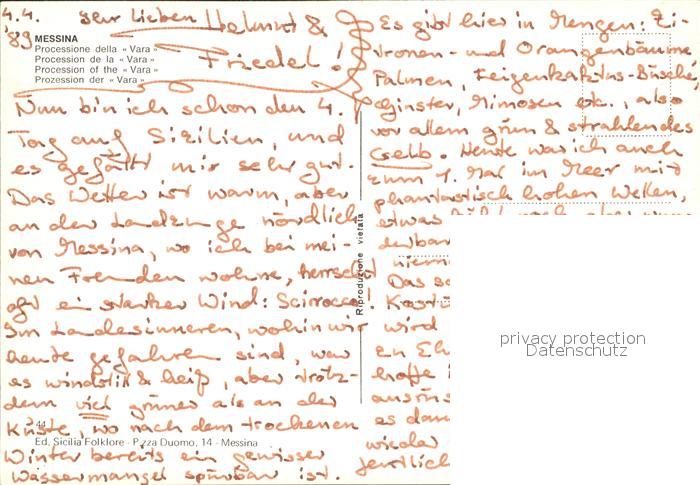 4.4.
'89
Ihr lieben Helmut &
Friedel!
MESSINA
Processione della « Vara »
Procession de la « Vara »
Procession of the « Vara »
Prozession der « Vara »
Nun bin ich schon den 4.
Tag auf Sizilien, und
es gefällt mir sehr gut.
Das Wetter ist warm, aber
an der Landenge nördlich
von Messina, wo ich bei mei-
nen Freunden wohne, herrscht
oft ein starker Wind: Scirocco!
Im Landesinneren, wohin wir
heute gefahren sind, war
es windstill & heiß, aber trotz-
dem viel grüner als an der
Küste, wo nach dem trockenen
Winter bereits ein gewisser
Wassermangel spürbar ist.
44
Ed. Sicilia Folklore - P.zza Duomo, 14 - Messina
Riproduzione vietata
Es gibt hier in Mengen: Zi-
tronen- und Orangenbäume,
Palmen, Feigenkaktus-Büsche,
Ginster, Mimosen etc., also
vor allem grün & strahlendes
Gelb. Heute war ich auch
zum 1. Mal im Meer mit
phantastisch hohen Wellen,
etwas
niem
Das
wird
hoffe
es
wieder
privacy protection
Datenschutz